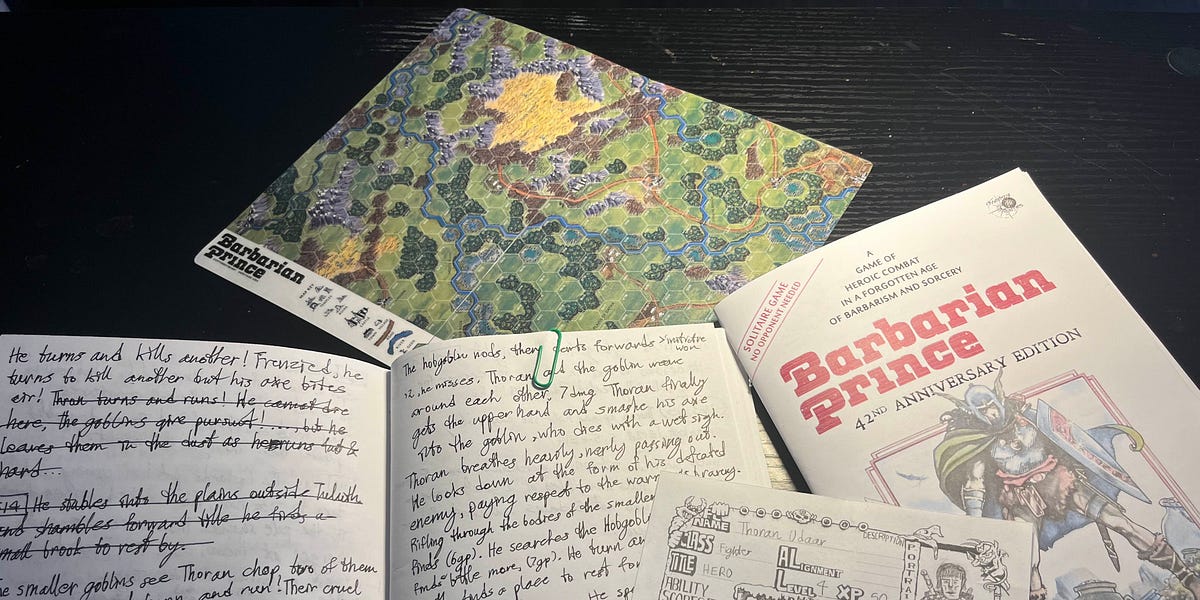 Barbarian
Prince
A
GAME OF
HEROIC COMBAT
IN A FORGOTTEN AGE
OF BARBARISM AND SORCERY
SOLITAIRE GAME
NO OPPONENT NEEDED
Barbarian
Prince
42ND ANNIVERSARY EDITION
He turns and kills another! Frenzied, he
turns to kill another but his axe bites
air! Thran turns and runs! He cannot die
here, the goblins give pursuit! .... but he
leaves them in the dust as he runs fast &
hard...
He stubles into the plains outside
and shambles forward till he finds a
small brook to rest by.
smaller goblins see Thoran chop two of them
and run! Their cruel
The hobgoblin nods, then darts forwards > initiative
won
12, he misses. Thoran and the goblin weave
around each other. 7 dmg Thoran finally
gets the upper hand and smashe his axe
into the goblin, who dies with a wet sigh.
Thoran breathes heavily, nerly passing out.
He looks down at the form of his defeated
enemy, paying respect to the
Rifling through the bodies of the smaller
finds (6gp). He searches the Hobgobl
finds little more, (7gp). He
finds a place to rest for
He sp
NAME Thoran Udaar
DESCRIPTION
CLASS Fighter
ALIGNMENT
TITLE HERO
LEVEL 4 XP 50
ABILITY
SCORES
PORTRAI